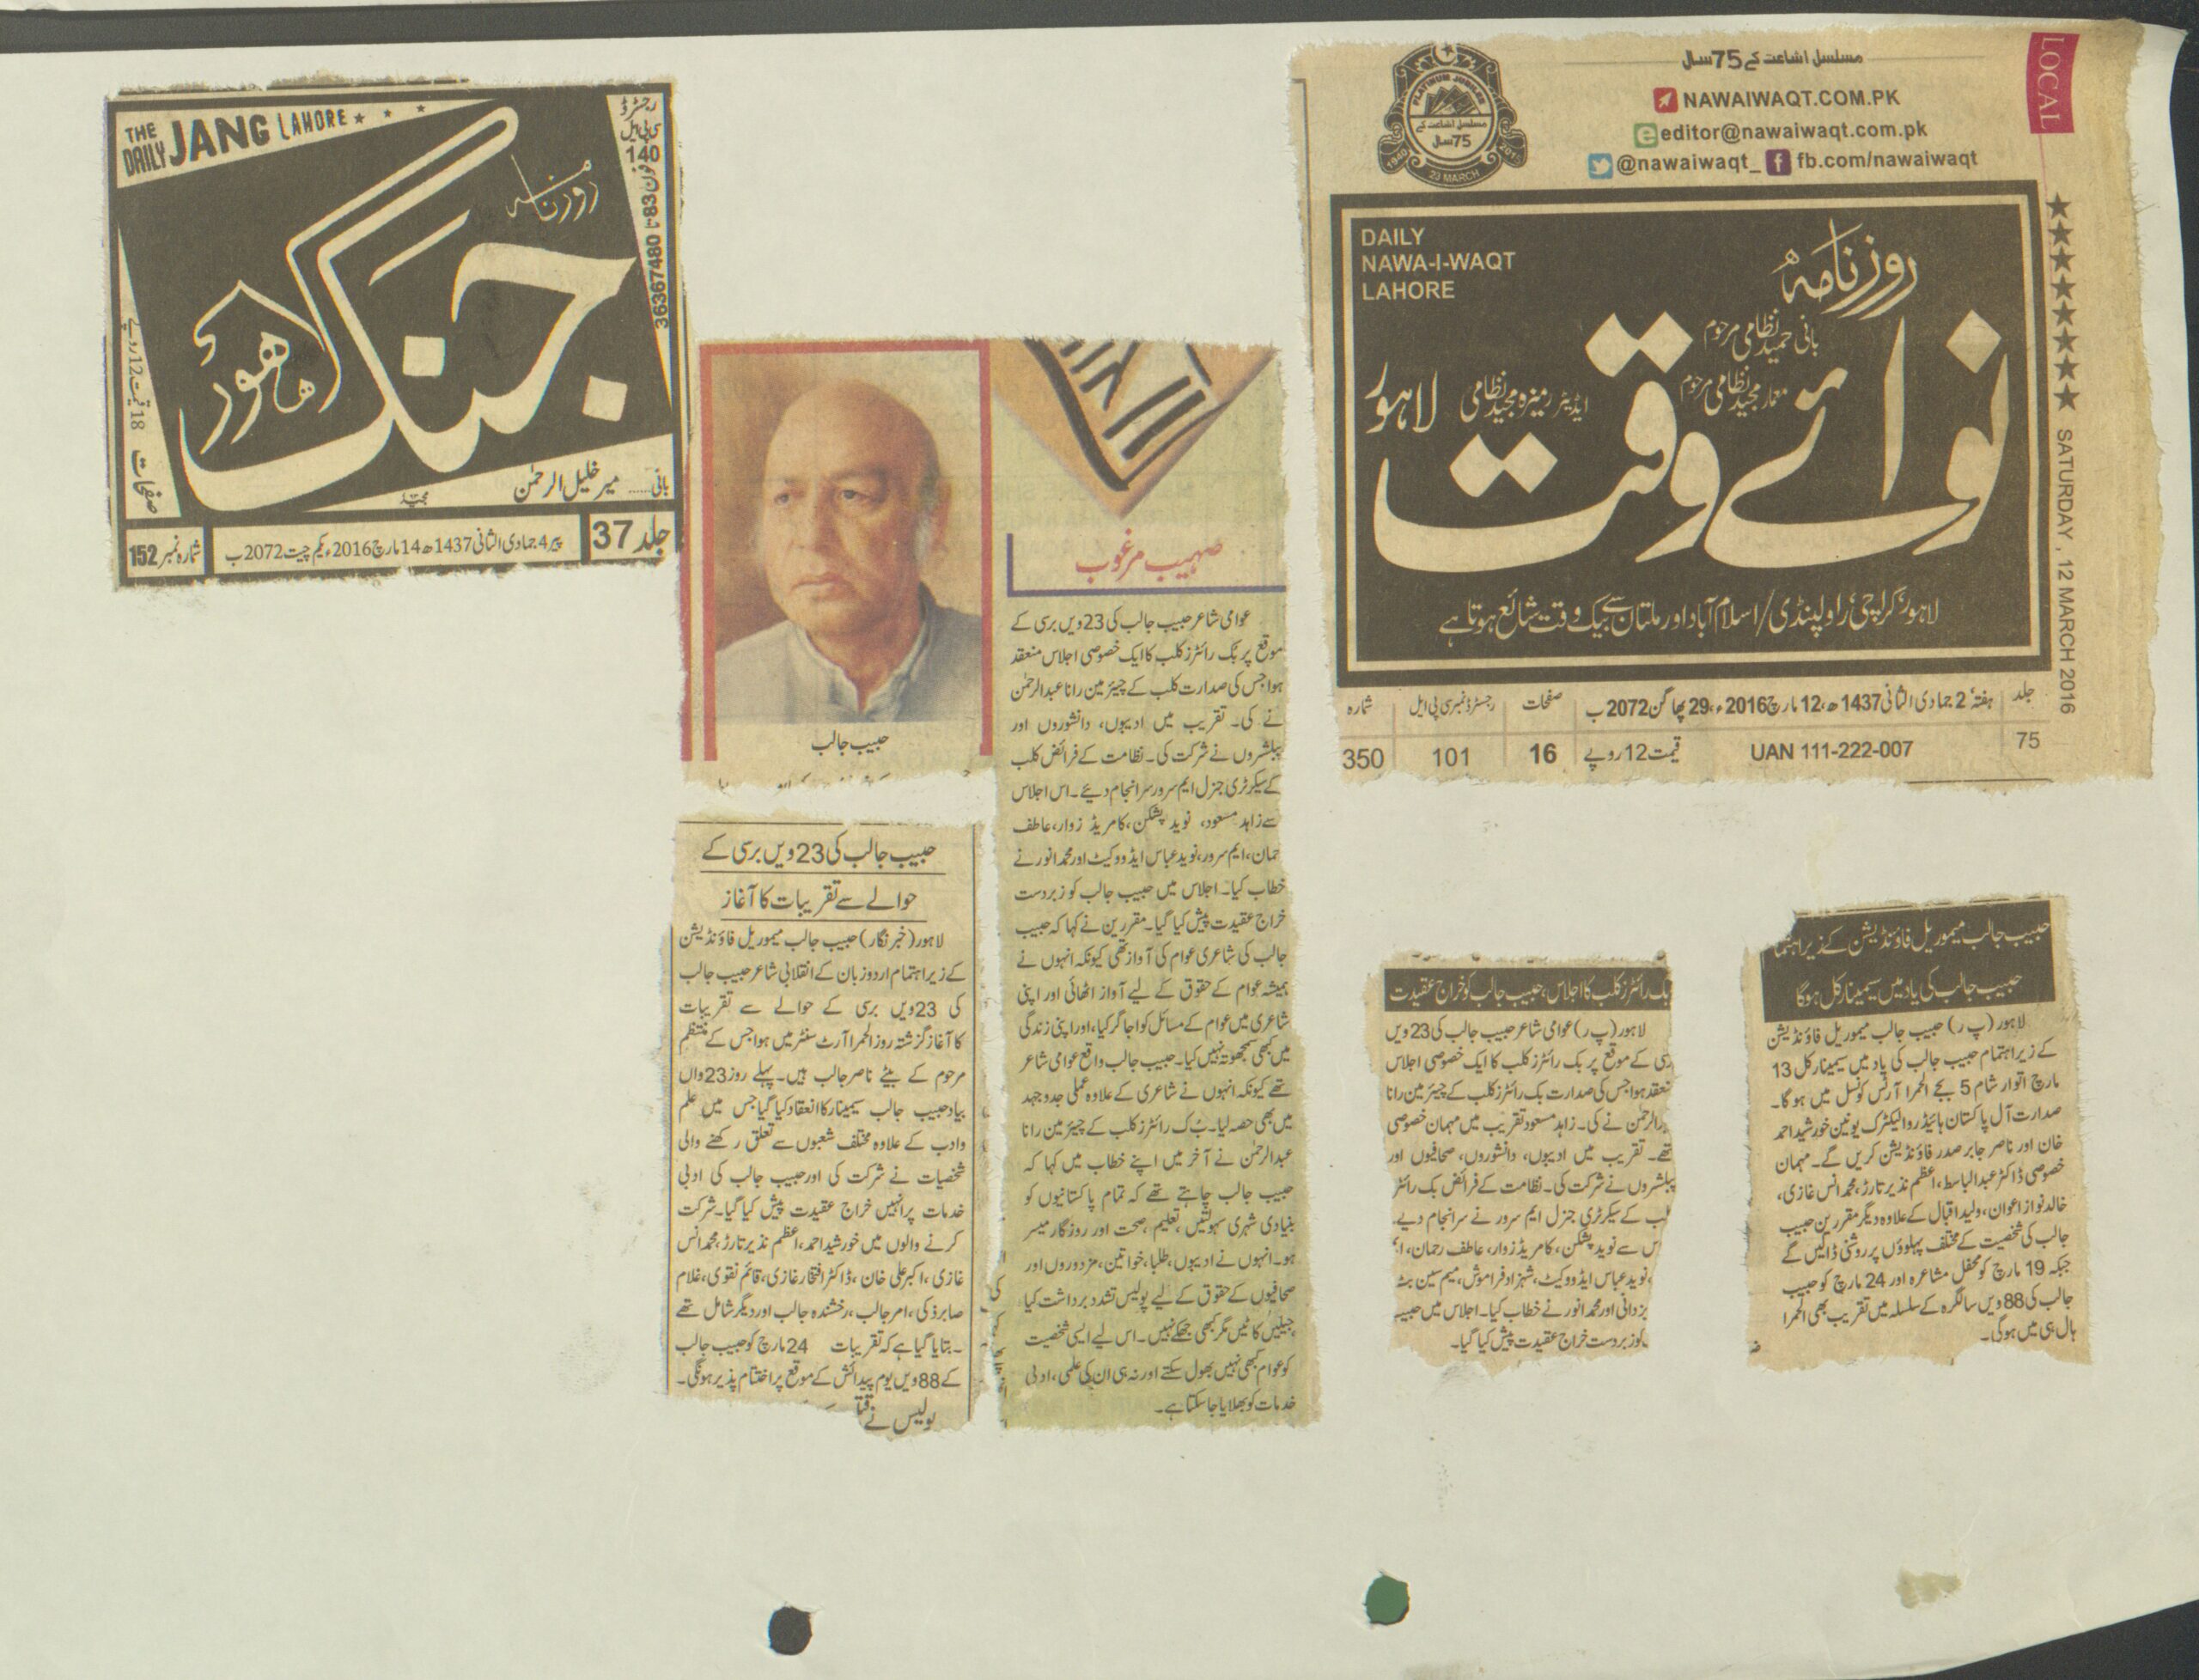 THE DAILY JANG LAHORE
رجسٹرڈ
سی پی ایل
140
فون 83 تا 36367480
روزنامہ
جنگ
لاہور
صفحات 18 قیمت 12 روپے
بانی...... میر خلیل الرحمٰن
جلد 37
پیر 4 جمادی الثانی 1437ھ 14 مارچ 2016ء یکم چیت 2072 ب
شمارہ نمبر 152
حبیب جالب
حبیب جالب کی 23 ویں برسی کے
حوالے سے تقریبات کا آغاز
لاہور (خبر نگار) حبیب جالب میموریل فاؤنڈیشن
کے زیر اہتمام اردو زبان کے انقلابی شاعر حبیب جالب
کی 23 ویں برسی کے حوالے سے تقریبات
کا آغاز گزشتہ روز الحمرا آرٹ سنٹر میں ہوا جس کے منتظم
مرحوم کے بیٹے ناصر جالب ہیں۔ پہلے روز 23 واں
بیاد حبیب جالب سیمینار کا انعقاد کیا گیا جس میں علم
وادب کے علاوہ مختلف شعبوں سے تعلق رکھنے والی
شخصیات نے شرکت کی اور حبیب جالب کی ادبی
خدمات پر انہیں خراج عقیدت پیش کیا گیا۔ شرکت
کرنے والوں میں خورشید احمد، اعظم نذیر تارڑ، محمد انس
غازی، اکبر علی خان، ڈاکٹر افتخار غازی، قائم نقوی، غلام
صابر ذکی، امر جالب، رخشندہ جالب اور دیگر شامل تھے
۔ بتایا گیا ہے کہ تقریبات 24 مارچ کو حبیب جالب
کے 88 ویں یوم پیدائش کے موقع پر اختتام پذیر ہونگی۔
پولیس نے
صہیب مرغوب
عوامی شاعر حبیب جالب کی 23 ویں برسی کے
موقع پر بُک رائٹرز کلب کا ایک خصوصی اجلاس منعقد
ہوا جس کی صدارت کلب کے چیئر مین رانا عبدالرحمٰن
نے کی۔ تقریب میں ادیبوں، دانشوروں اور
پبلشروں نے شرکت کی۔ نظامت کے فرائض کلب
کے سیکرٹری جنرل ایم سرور سرانجام دیئے۔ اس اجلاس
سے زاہد مسعود، نوید پشکن، کامریڈ زوار، عاطف
حمان، ایم سرور، نوید عباس ایڈووکیٹ اور محمد انور نے
خطاب کیا۔ اجلاس میں حبیب جالب کو زبردست
خراج عقیدت پیش کیا گیا۔ مقررین نے کہا کہ حبیب
جالب کی شاعری عوام کی آواز تھی کیونکہ انہوں نے
ہمیشہ عوام کے حقوق کے لیے آواز اٹھائی اور اپنی
شاعری میں عوام کے مسائل کو اجاگر کیا، اور اپنی زندگی
میں کبھی سمجھوتہ نہیں کیا۔ حبیب جالب واقع عوامی شاعر
تھے کیونکہ انہوں نے شاعری کے علاوہ عملی جدوجہد
میں بھی حصہ لیا۔ بُک رائٹرز کلب کے چیئر مین رانا
عبدالرحمٰن نے آخر میں اپنے خطاب میں کہا کہ
حبیب جالب چاہتے تھے کہ تمام پاکستانیوں کو
بنیادی شہری سہولتیں، تعلیم، صحت اور روزگار میسر
ہو۔ انہوں نے ادیبوں، طلبا، خواتین، مزدوروں اور
صحافیوں کے حقوق کے لیے پولیس تشدد برداشت کیا
جیلیں کاٹیں مگر کبھی جھکے نہیں۔ اس لیے ایسی شخصیت
کو عوام کبھی نہیں بھول سکتے اور نہ ہی ان کی علمی، ادبی
خدمات کو بھلایا جا سکتا ہے۔
LOCAL
مسلسل اشاعت کے 75 سال
NAWAIWAQT.COM.PK
editor@nawaiwaqt.com.pk
@nawaiwaqt_ fb.com/nawaiwaqt
PLATINUM JUBILEE
مسلسل اشاعت کے
75 سال
1940 2015
23 MARCH
DAILY
NAWA-I-WAQT
LAHORE
روزنامہ
نوائے وقت
لاہور
بانی حمید نظامی مرحوم
معمار مجید نظامی مرحوم
ایڈیٹر رمیزہ مجید نظامی
لاہور، کراچی، راولپنڈی/اسلام آباد اور ملتان سے بیک وقت شائع ہوتا ہے
SATURDAY, 12 MARCH 2016
جلد ہفتہ 2 جمادی الثانی 1437ھ، 12 مارچ 2016ء، 29 پھاگن 2072 ب صفحات رجسٹرڈ نمبر سی پی ایل شمارہ
75 UAN 111-222-007 قیمت 12 روپے 16 101 350
بک رائٹرز کلب کا اجلاس، حبیب جالب کو خراج عقیدت
لاہور (پ ر) عوامی شاعر حبیب جالب کی 23 ویں
رسی کے موقع پر بک رائٹرز کلب کا ایک خصوصی اجلاس
نعقد ہوا جس کی صدارت بک رائٹرز کلب کے چیئر مین رانا
دالرحمٰن نے کی۔ زاہد مسعود تقریب میں مہمان خصوصی
تھے۔ تقریب میں ادیبوں، دانشوروں، صحافیوں اور
پبلشروں نے شرکت کی۔ نظامت کے فرائض بک رائٹر
لب کے سیکرٹری جنرل ایم سرور نے سرانجام دیے۔
س سے نوید پشکن، کامریڈ زوار، عاطف رحمان،
، نوید عباس ایڈووکیٹ، شہزاد فراموش، میم سین بٹ
یزدانی اور محمد انور نے خطاب کیا۔ اجلاس میں حبیب
کو زبردست خراج عقیدت پیش کیا گیا۔
حبیب جالب میموریل فاؤنڈیشن کے زیر اہتما
حبیب جالب کی یاد میں سیمینار کل ہوگا
لاہور (پ ر) حبیب جالب میموریل فاؤنڈیشن
کے زیر اہتمام حبیب جالب کی یاد میں سیمینار کل 13
مارچ اتوار شام 5 بجے الحمرا آرٹس کونسل میں ہو گا۔
صدارت آل پاکستان ہائیڈرو الیکٹرک یونین خورشید احمد
خان اور ناصر جابر صدر فاؤنڈیشن کریں گے۔ مہمان
خصوصی ڈاکٹر عبدالباسط، اعظم نذیر تارڑ، محمد انس غازی،
خالد نواز اعوان، ولید اقبال کے علاوہ دیگر مقررین حبیب
جالب کی شخصیت کے مختلف پہلوؤں پر روشنی ڈالیں گے
جبکہ 19 مارچ کو محفل مشاعرہ اور 24 مارچ کو حبیب
جالب کی 88 ویں سالگرہ کے سلسلہ میں تقریب بھی الحمرا
ہال ہی میں ہوگی۔